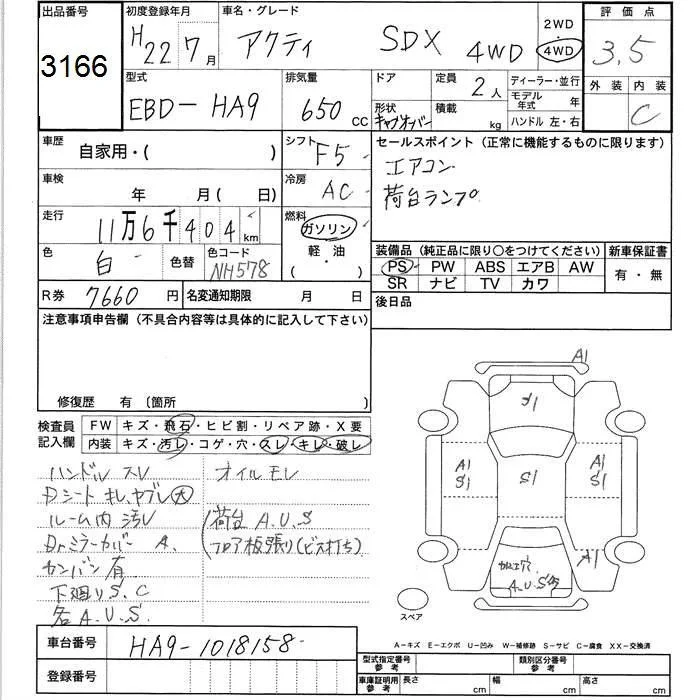 出品番号
3166
初度登録年月
H22 7月
車名・グレード
アクティ SDX 4WD
2WD
4WD
評価点
3.5
外装 内装
C
型式
EBD-HA9
排気量
650 CC
ドア
形状
キャブオーバー
定員
2人
積載
kg
ディーラー・並行
モデル年式 年
ハンドル 左・右
車歴
自家用・( )
シフト
F5
車検
年 月( 日)
冷房
AC
走行
11万6千404km
燃料
ガソリン
軽・油
( )
色
白
色替
色コード
NH578
R券 7660円
名変通知期限 月 日
セールスポイント(正常に機能するものに限ります)
エアコン
荷台ランプ
装備品(純正品に限り〇をつけてください)
PS PW ABS エアB AW
SR ナビ TV カワ
新車保証書
有・無
後日品
注意事項申告欄(不具合内容等は具体的に記入して下さい)
修復歴 有(箇所 )
検査員記入欄
FW キズ・飛石・ヒビ割・リペア跡・X要
内装 キズ・汚レ・コゲ・穴・スレ・キレ・破レ
ハンドル スレ
Dシート キレ、ヤブレ大
ルーム内 汚レ
Drミラーカバー A.
カンバン 有
下廻り S.C
各 A.U.S
オイルモレ
荷台 A.U.S
フロア板張り(ビス打ち)
A1
S1
A1
S1
A1
S1
A1
A.U.S
スペア
A-キズ E-エクボ U-凹み W-補修跡 S-サビ C-腐食 XX-交換済
車台番号 HA9-1018158
登録番号
型式指定番号 参考
類別区分番号 参考
車庫証明用 参考
長さ cm
幅 cm
高さ cm